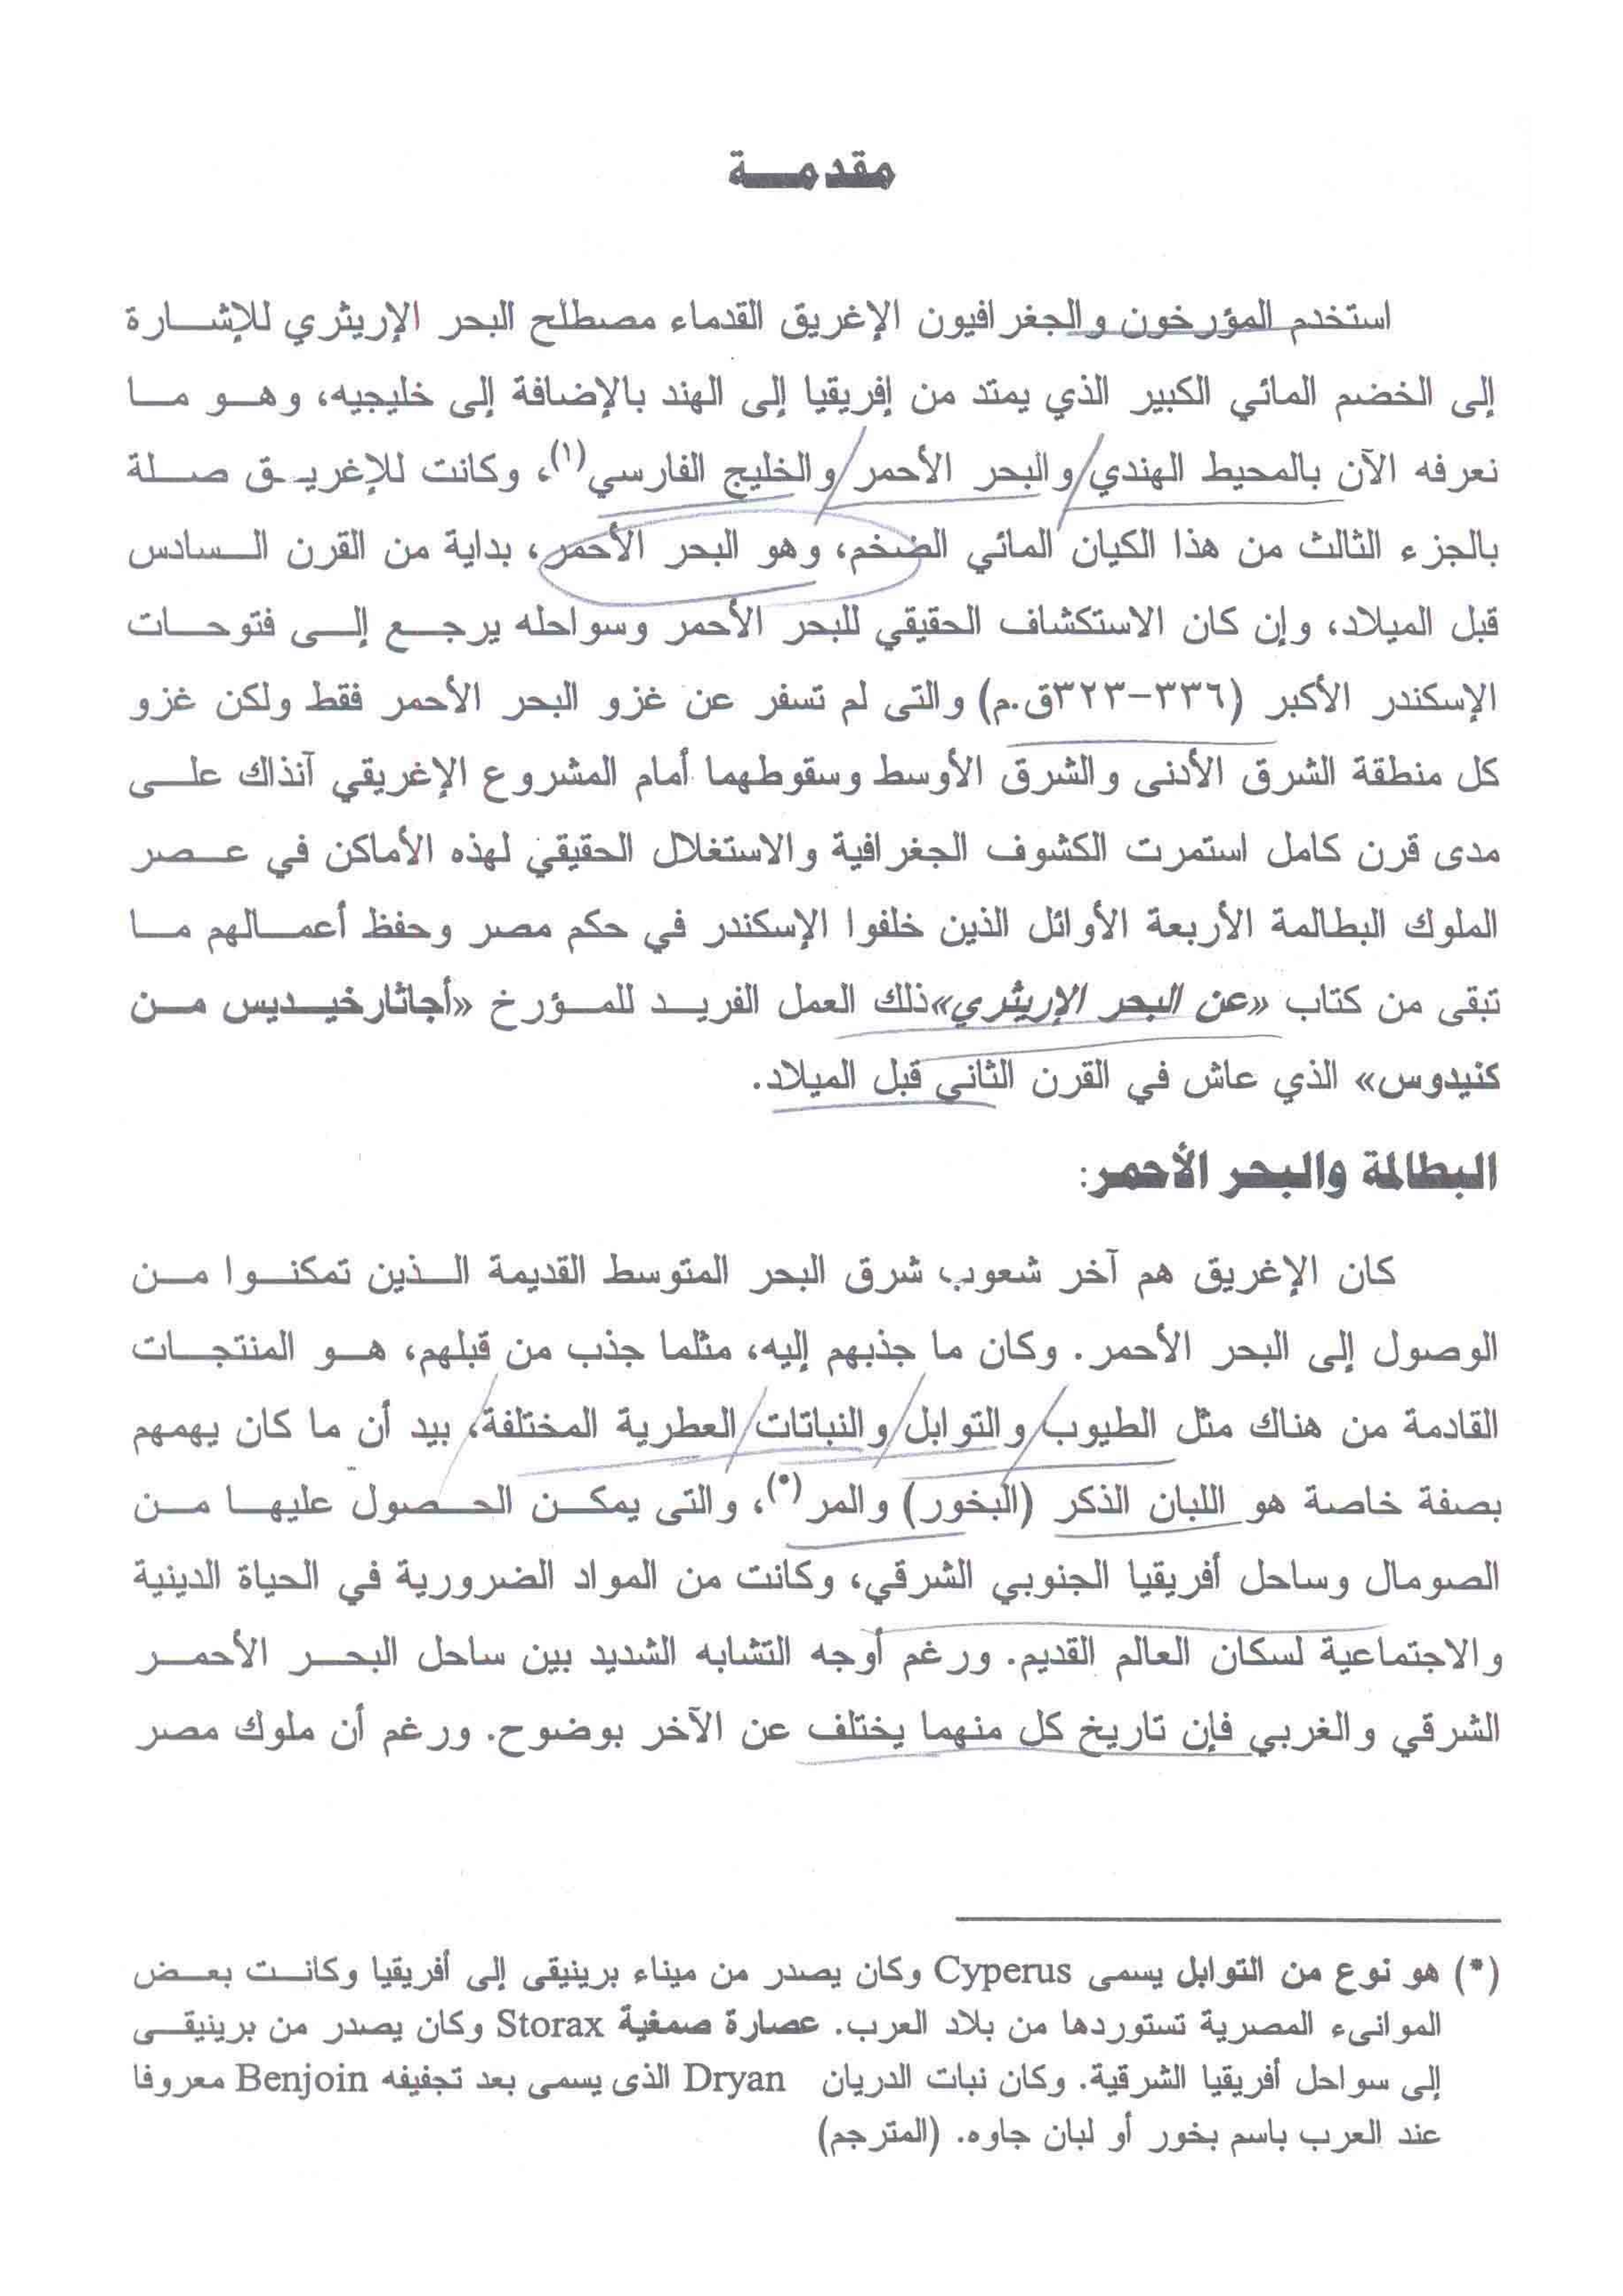 مقدمة
استخدم المؤرخون والجغرافيون الإغريق القدماء مصطلح البحر الإريثري للإشارة
إلى الخضم المائي الكبير الذي يمتد من إفريقيا إلى الهند بالإضافة إلى خليجيه، وهو ما
نعرفه الآن بالمحيط الهندي والبحر الأحمر والخليج الفارسي(١)، وكانت للإغريق صلة
بالجزء الثالث من هذا الكيان المائي الضخم، وهو البحر الأحمر، بداية من القرن السادس
قبل الميلاد، وإن كان الاستكشاف الحقيقي للبحر الأحمر وسواحله يرجع إلى فتوحات
الإسكندر الأكبر (٣٣٦-٣٢٣ق.م) والتى لم تسفر عن غزو البحر الأحمر فقط ولكن غزو
كل منطقة الشرق الأدنى والشرق الأوسط وسقوطهما أمام المشروع الإغريقي آنذاك على
مدى قرن كامل استمرت الكشوف الجغرافية والاستغلال الحقيقي لهذه الأماكن في عصر
الملوك البطالمة الأربعة الأوائل الذين خلفوا الإسكندر في حكم مصر وحفظ أعمالهم ما
تبقى من كتاب «عن البحر الإريثري»ذلك العمل الفريد للمؤرخ «أجاثارخيديس من
كنيدوس» الذي عاش في القرن الثاني قبل الميلاد.
البطالمة والبحر الأحمر:
كان الإغريق هم آخر شعوب شرق البحر المتوسط القديمة الذين تمكنوا من
الوصول إلى البحر الأحمر. وكان ما جذبهم إليه، مثلما جذب من قبلهم، هو المنتجات
القادمة من هناك مثل الطيوب والتوابل والنباتات العطرية المختلفة، بيد أن ما كان يهمهم
بصفة خاصة هو اللبان الذكر (البخور) والمر(*)، والتى يمكن الحصول عليها من
الصومال وساحل أفريقيا الجنوبي الشرقي، وكانت من المواد الضرورية في الحياة الدينية
والاجتماعية لسكان العالم القديم. ورغم أوجه التشابه الشديد بين ساحل البحر الأحمر
الشرقي والغربي فإن تاريخ كل منهما يختلف عن الآخر بوضوح. ورغم أن ملوك مصر
(*) هو نوع من التوابل يسمى Cyperus وكان يصدر من ميناء برينيقى إلى أفريقيا وكانت بعض
الموانىء المصرية تستوردها من بلاد العرب. عصارة صمغية Storax وكان يصدر من برينيقى
إلى سواحل أفريقيا الشرقية. وكان نبات الدريان Dryan الذى يسمى بعد تجفيفه Benjoin معروفا
عند العرب باسم بخور أو لبان جاوه. (المترجم)